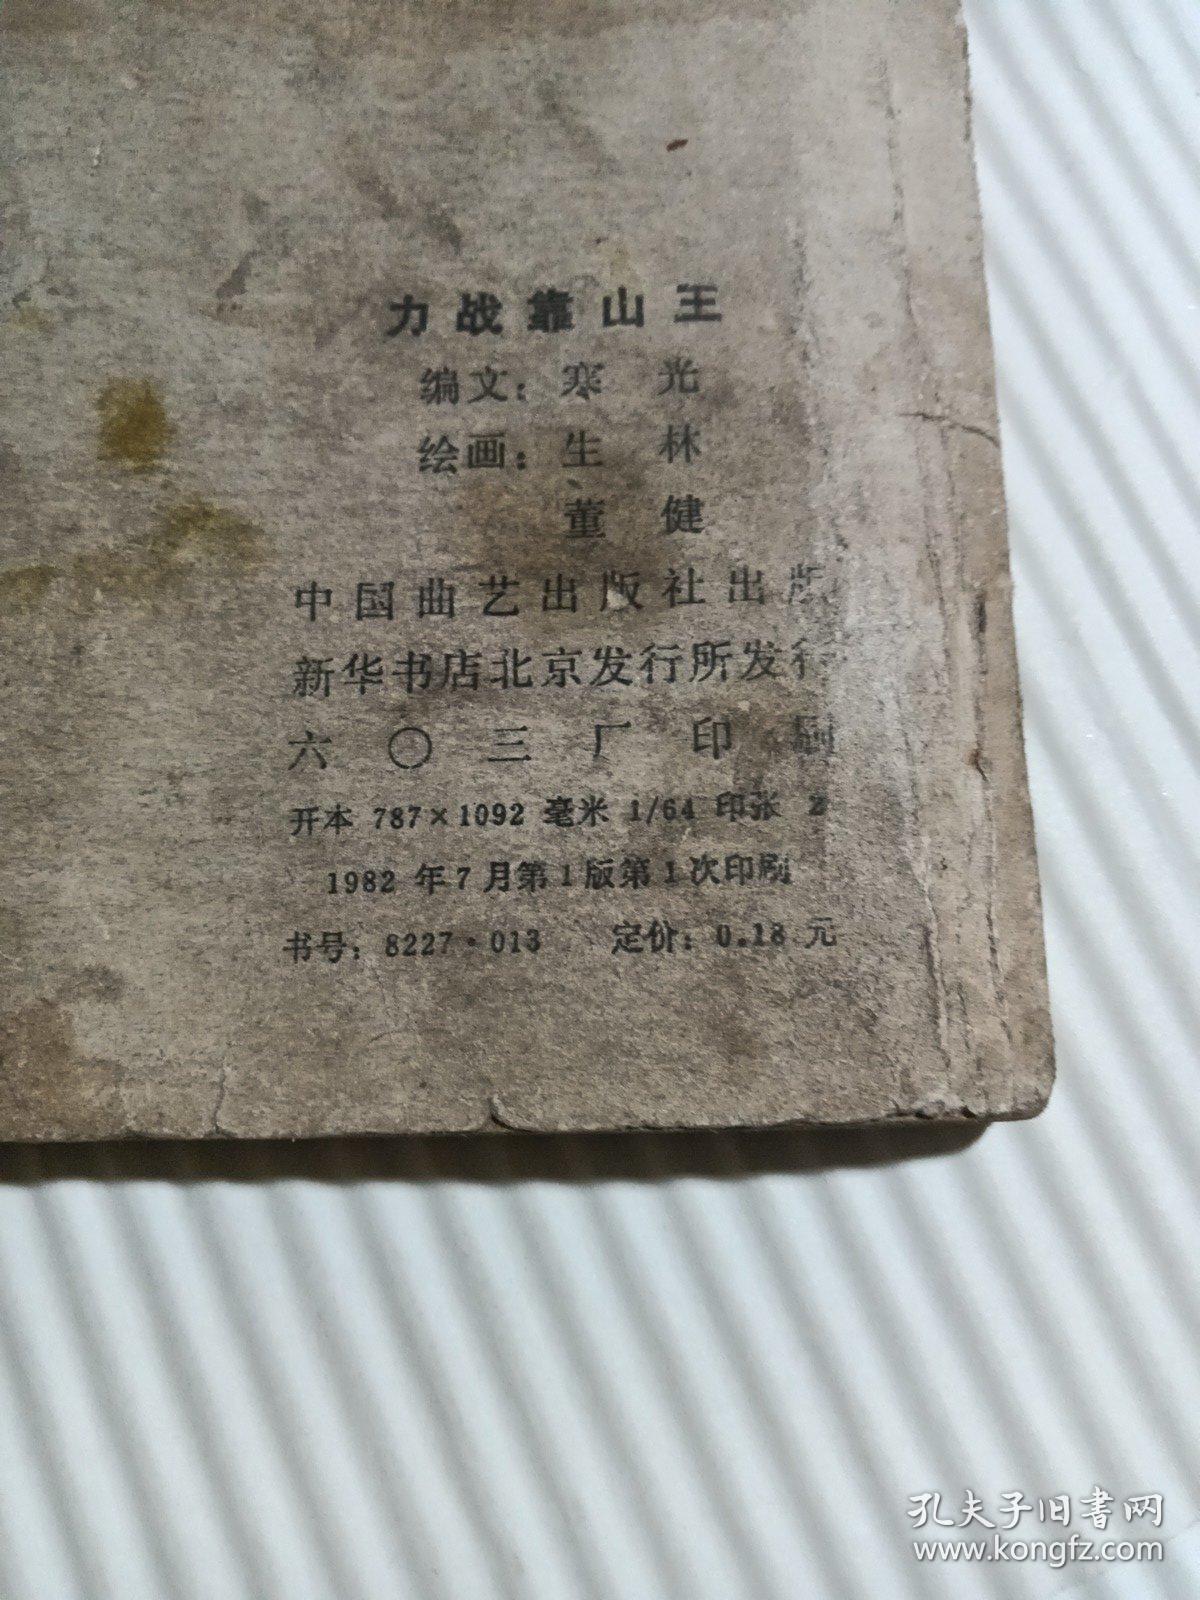 力战靠山王
编文：寒 光
绘画：生 林
董 健
中国曲艺出版社出版
新华书店北京发行所发行
六〇三厂印刷
开本 787×1092 毫米 1/64 印张 2
1982 年 7 月第 1 版第 1 次印刷
书号：8227·013 定价：0.18 元
孔夫子旧书网
www.kongfz.com